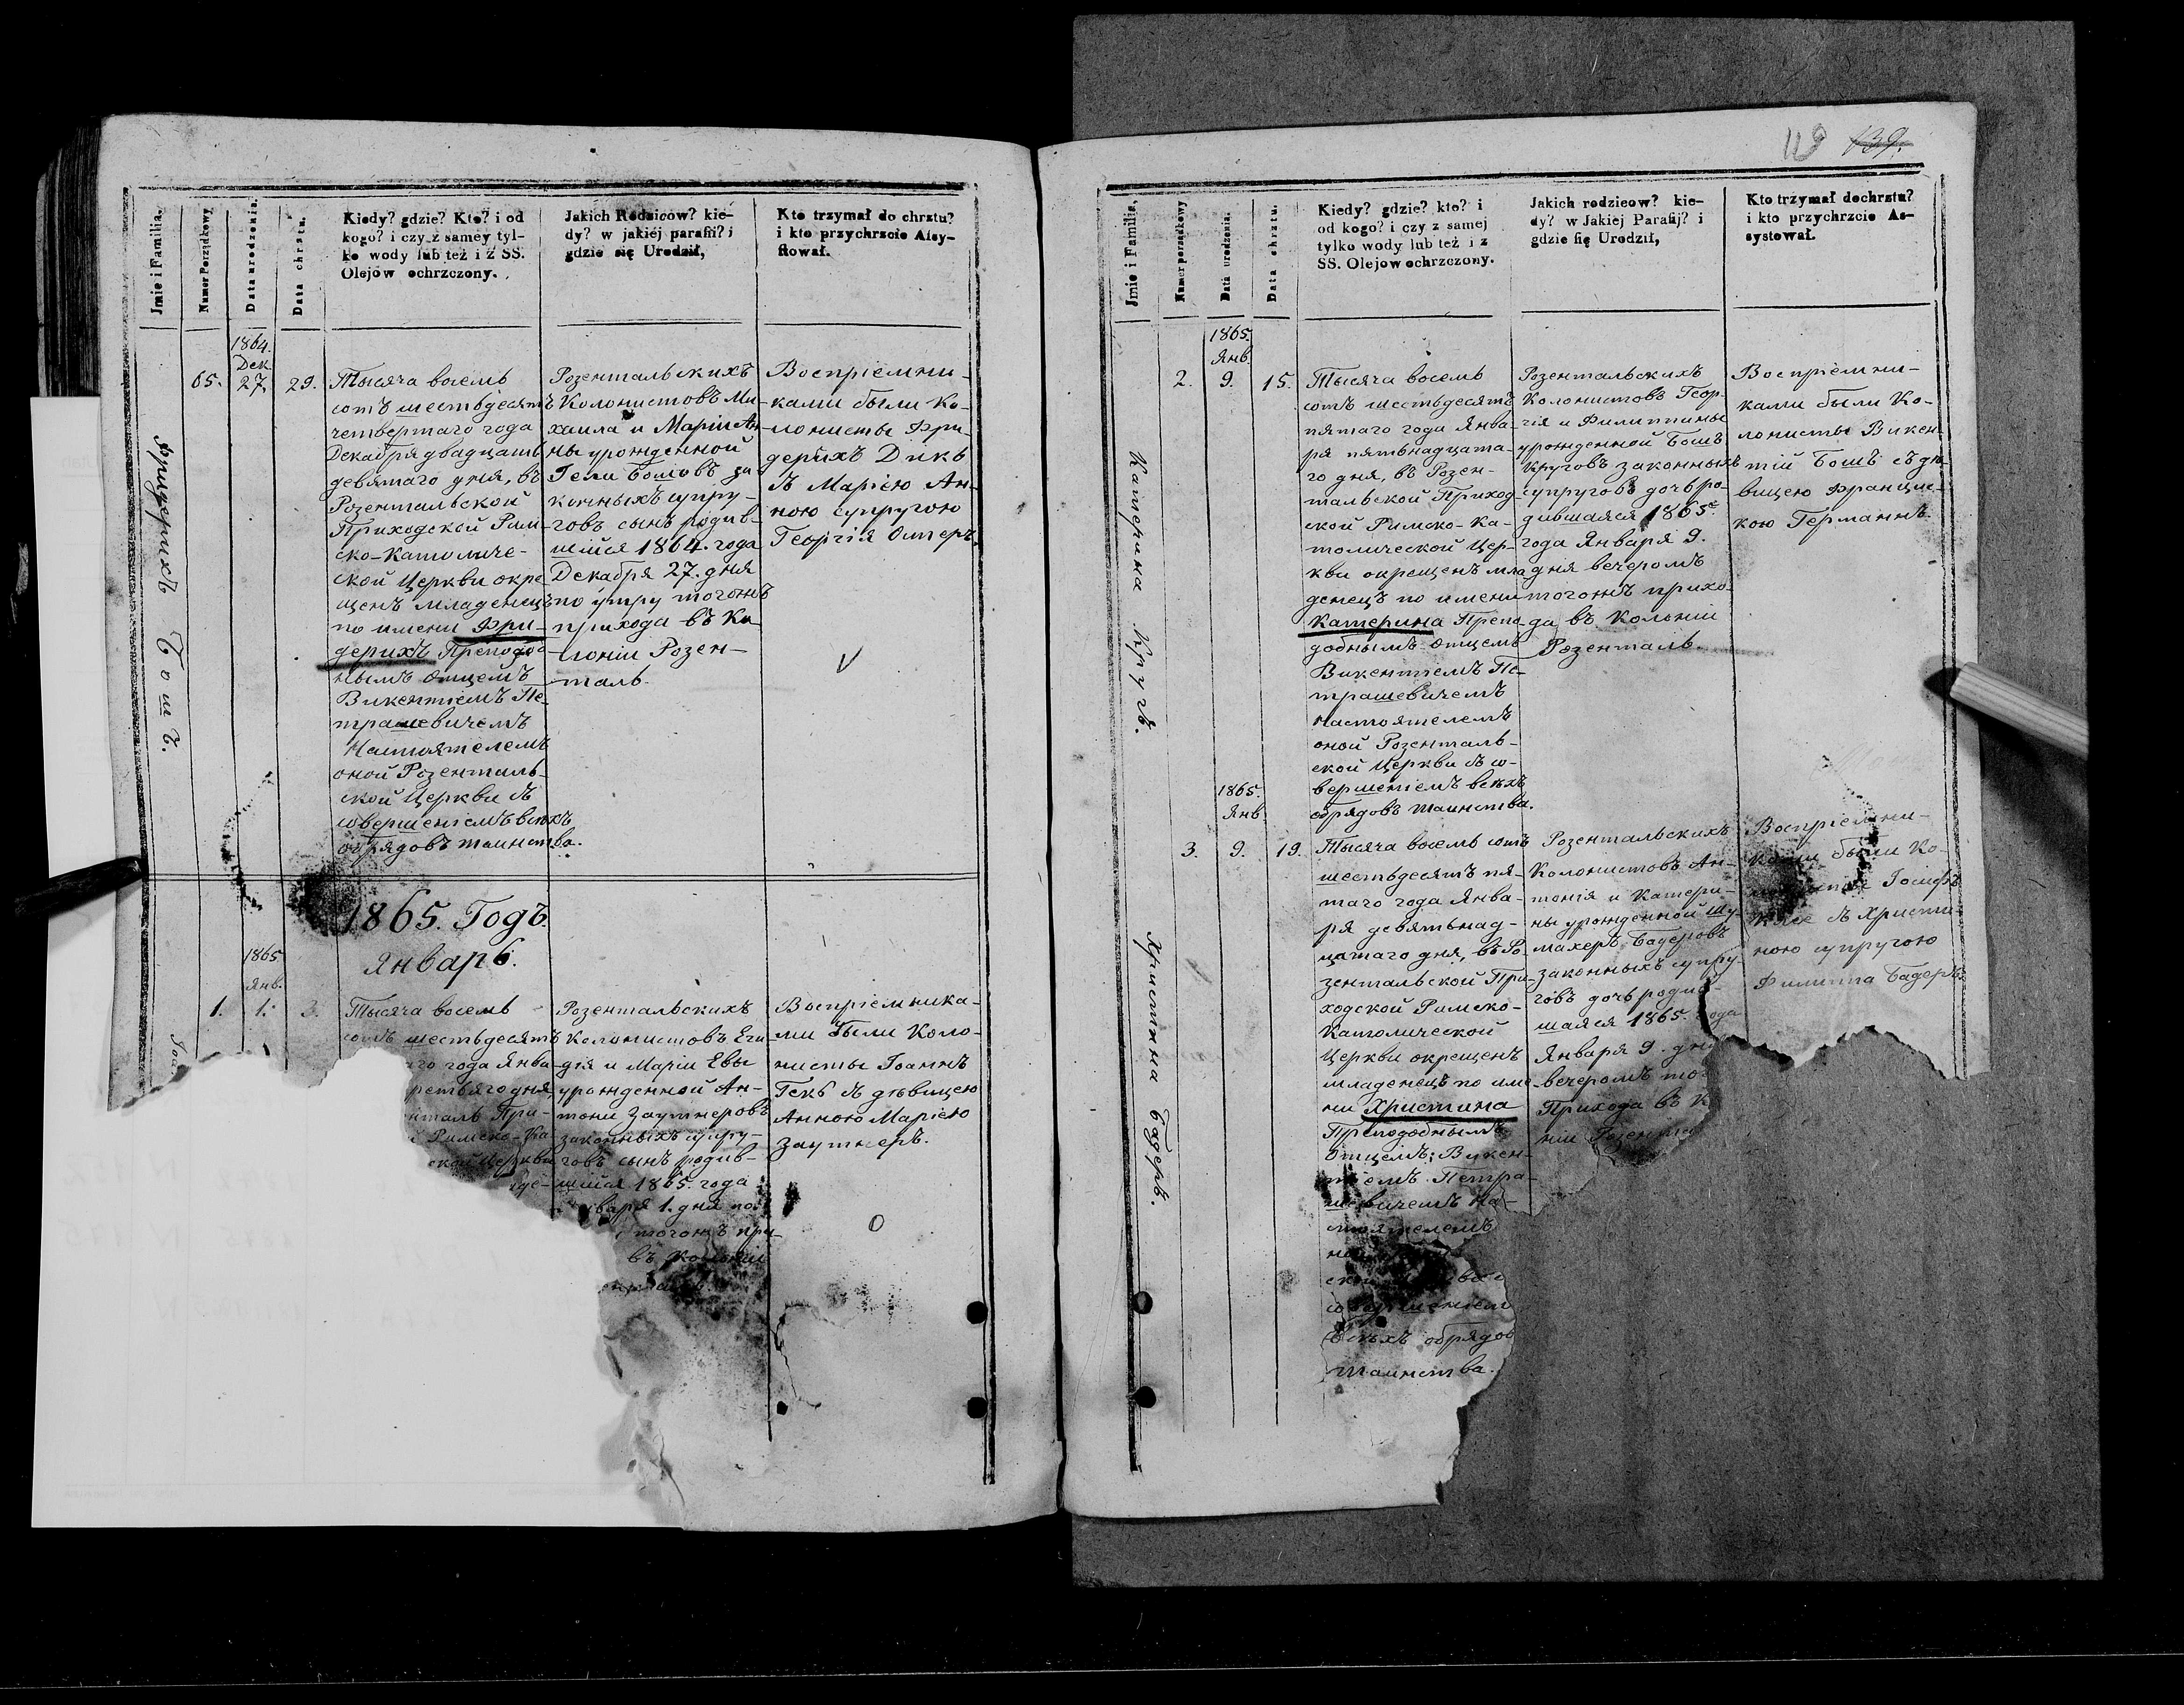 Jmie i Familia.
Numer Porządkowy
Data urodzenia.
Data chrztu.
Kiedy? gdzie? Kto? i od
kogo? i czy z samey tyl-
ko wody lub też i z SS.
Olejów ochrzczony.
Jakich Rodziców? kie-
dy? w jakiéj parafii? i
gdzie się Urodził,
Kto trzymał do chrztu?
i kto przychrzcie Assy-
stował.
Фридерихъ Бошъ.
65.
1864.
Дек.
27.
29.
Тысяча восемь
сотъ шестьдесятъ
четвертаго года
Декабря двадцать
девятаго дня, въ
Розентальской
Приходской Рим-
ско-Католиче-
ской Церкви окре
щенъ младенецъ
по имени Фри-
дерихъ Преподоб
нымъ Отцемъ
Викентіемъ Пе-
трашевичемъ
Настоятелемъ
оной Розенталь-
ской Церкви съ
совершеніемъ всѣхъ
обрядовъ таинства.
Розентальскихъ
Колонистовъ Ми-
хаила и Маріи Ан-
ны урожденной
Гели Бошовъ за
конныхъ супру-
говъ сынъ родив-
шійся 1864. года
Декабря 27. дня
по утру тогожъ
прихода въ Ко-
лоніи Розен-
таль.
Воспріемни-
ками были Ко-
лонисты Фри-
дерихъ Дикъ
съ Маріею Ан-
ною супругою
Георгія Остеръ.
V
1865. Годъ.
Январь.
1865
Янв.
1.
1.
3.
Тысяча восемь
сотъ шестьдесятъ
го года Янва-
ретьяго дня,
нталь При-
Римско-Ка-
ской Церкви
Розентальскихъ
Колонистовъ Еги-
дія и Маріи Евы
урожденной Ан-
тони Заутнеровъ
законныхъ супру-
говъ сынъ родив-
шійся 1865. года
нваря 1. дня по
тогожъ при-
въ Колоніи
Воспріемника-
ми были Коло-
нисты Іоаннъ
Гекъ съ дѣвицею
Анною Маріею
Заутнеръ.
О
119 139.
Jmie i Familia,
Numer porządkowy
Data urodzenia.
Data chrztu.
Kiedy? gdzie? kto? i
od kogo? i czy z samej
tylko wody lub też i z
SS. Olejow ochrzczony.
Jakich rodzicow? kie-
dy? w Jakiej Parafij? i
gdzie się Urodził,
Kto trzymał dochrztu?
i kto przychrzcie As-
systował.
Катерина Кругъ.
1865.
Янв.
2.
9.
15.
Тысяча восемь
сотъ шестьдесятъ
пятаго года Янва-
ря пятьнадцата-
го дня, въ Розен-
тальской Приход-
ской Римско-Ка-
толической Цер-
кви окрещенъ мла
денецъ по имени
Катерина Препо-
добнымъ Отцемъ
Викентіемъ Пе-
трашевичемъ
настоятелемъ
оной Розенталь-
ской Церкви съ со-
вершеніемъ всѣхъ
обрядовъ таинства.
Розентальскихъ
Колонистовъ Геор-
гія и Филиппины
урожденной Бошъ
Круговъ законныхъ
супруговъ дочь ро-
дившаяся 1865.
года Января 9.
дня вечеромъ
тогожъ прихо-
да въ Колоніи
Розенталь.
Воспріемни-
ками были Ко-
лонисты Викен-
тій Бошъ съ дѣ-
вицею Францис-
кою Германнъ.
Христина Бадеръ.
1865.
Янв.
3.
9.
19.
Тысяча восемь сотъ
шестьдесятъ пя-
таго года Янва-
ря девятьнад-
цатаго дня, въ Ро
зентальской При-
ходской Римско-
Католической
Церкви окрещенъ
младенецъ по име
ни Христина
Преподобнымъ
Отцемъ: Викен-
тіемъ Петра-
шевичемъ На-
стоятелемъ
совершеніем
всѣхъ обрядов
таинства.
Розентальскихъ
Колонистовъ Ан-
тонія и Катери-
ны урожденной Шу-
махеръ Бадеровъ
законныхъ супру-
говъ дочь родив-
шаяся 1865. года
Января 9. дня
вечеромъ то
Прихода въ К
ніи Розента
Воспріемни-
ками были Ко-
Іосифъ
съ Христи-
ною супругою
Филиппа Бадеръ.